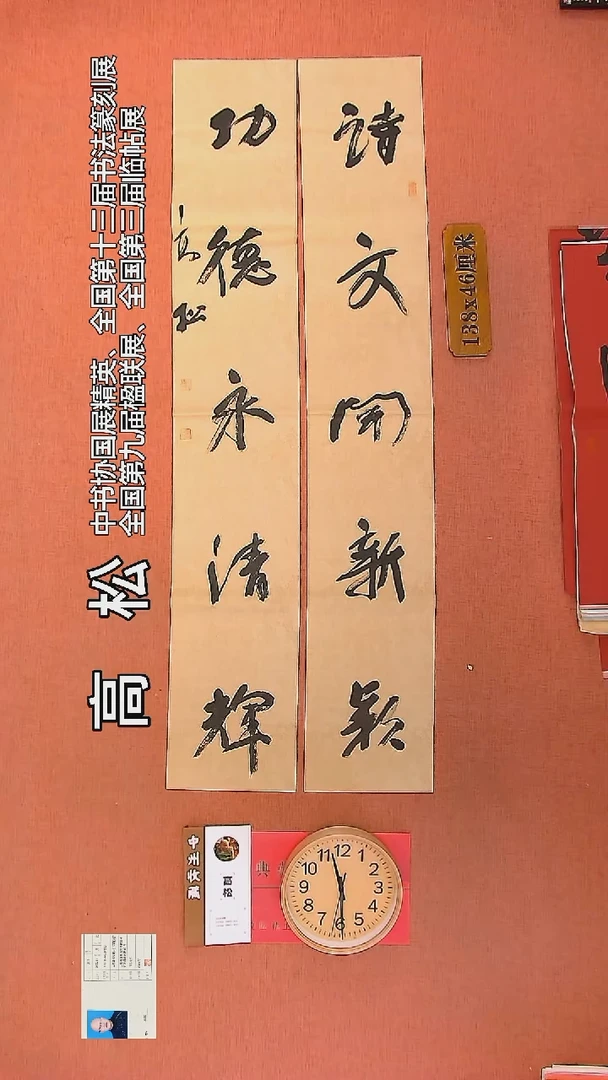 詩文開新
功德永清輝
高松
138x46厘米
高松
中书协国展精英、全国第十三届书法篆刻展
全国第九届楹联展、全国第三届临帖展
高松
典
12
1
2
3
4
5
6
7
8
9
10
11